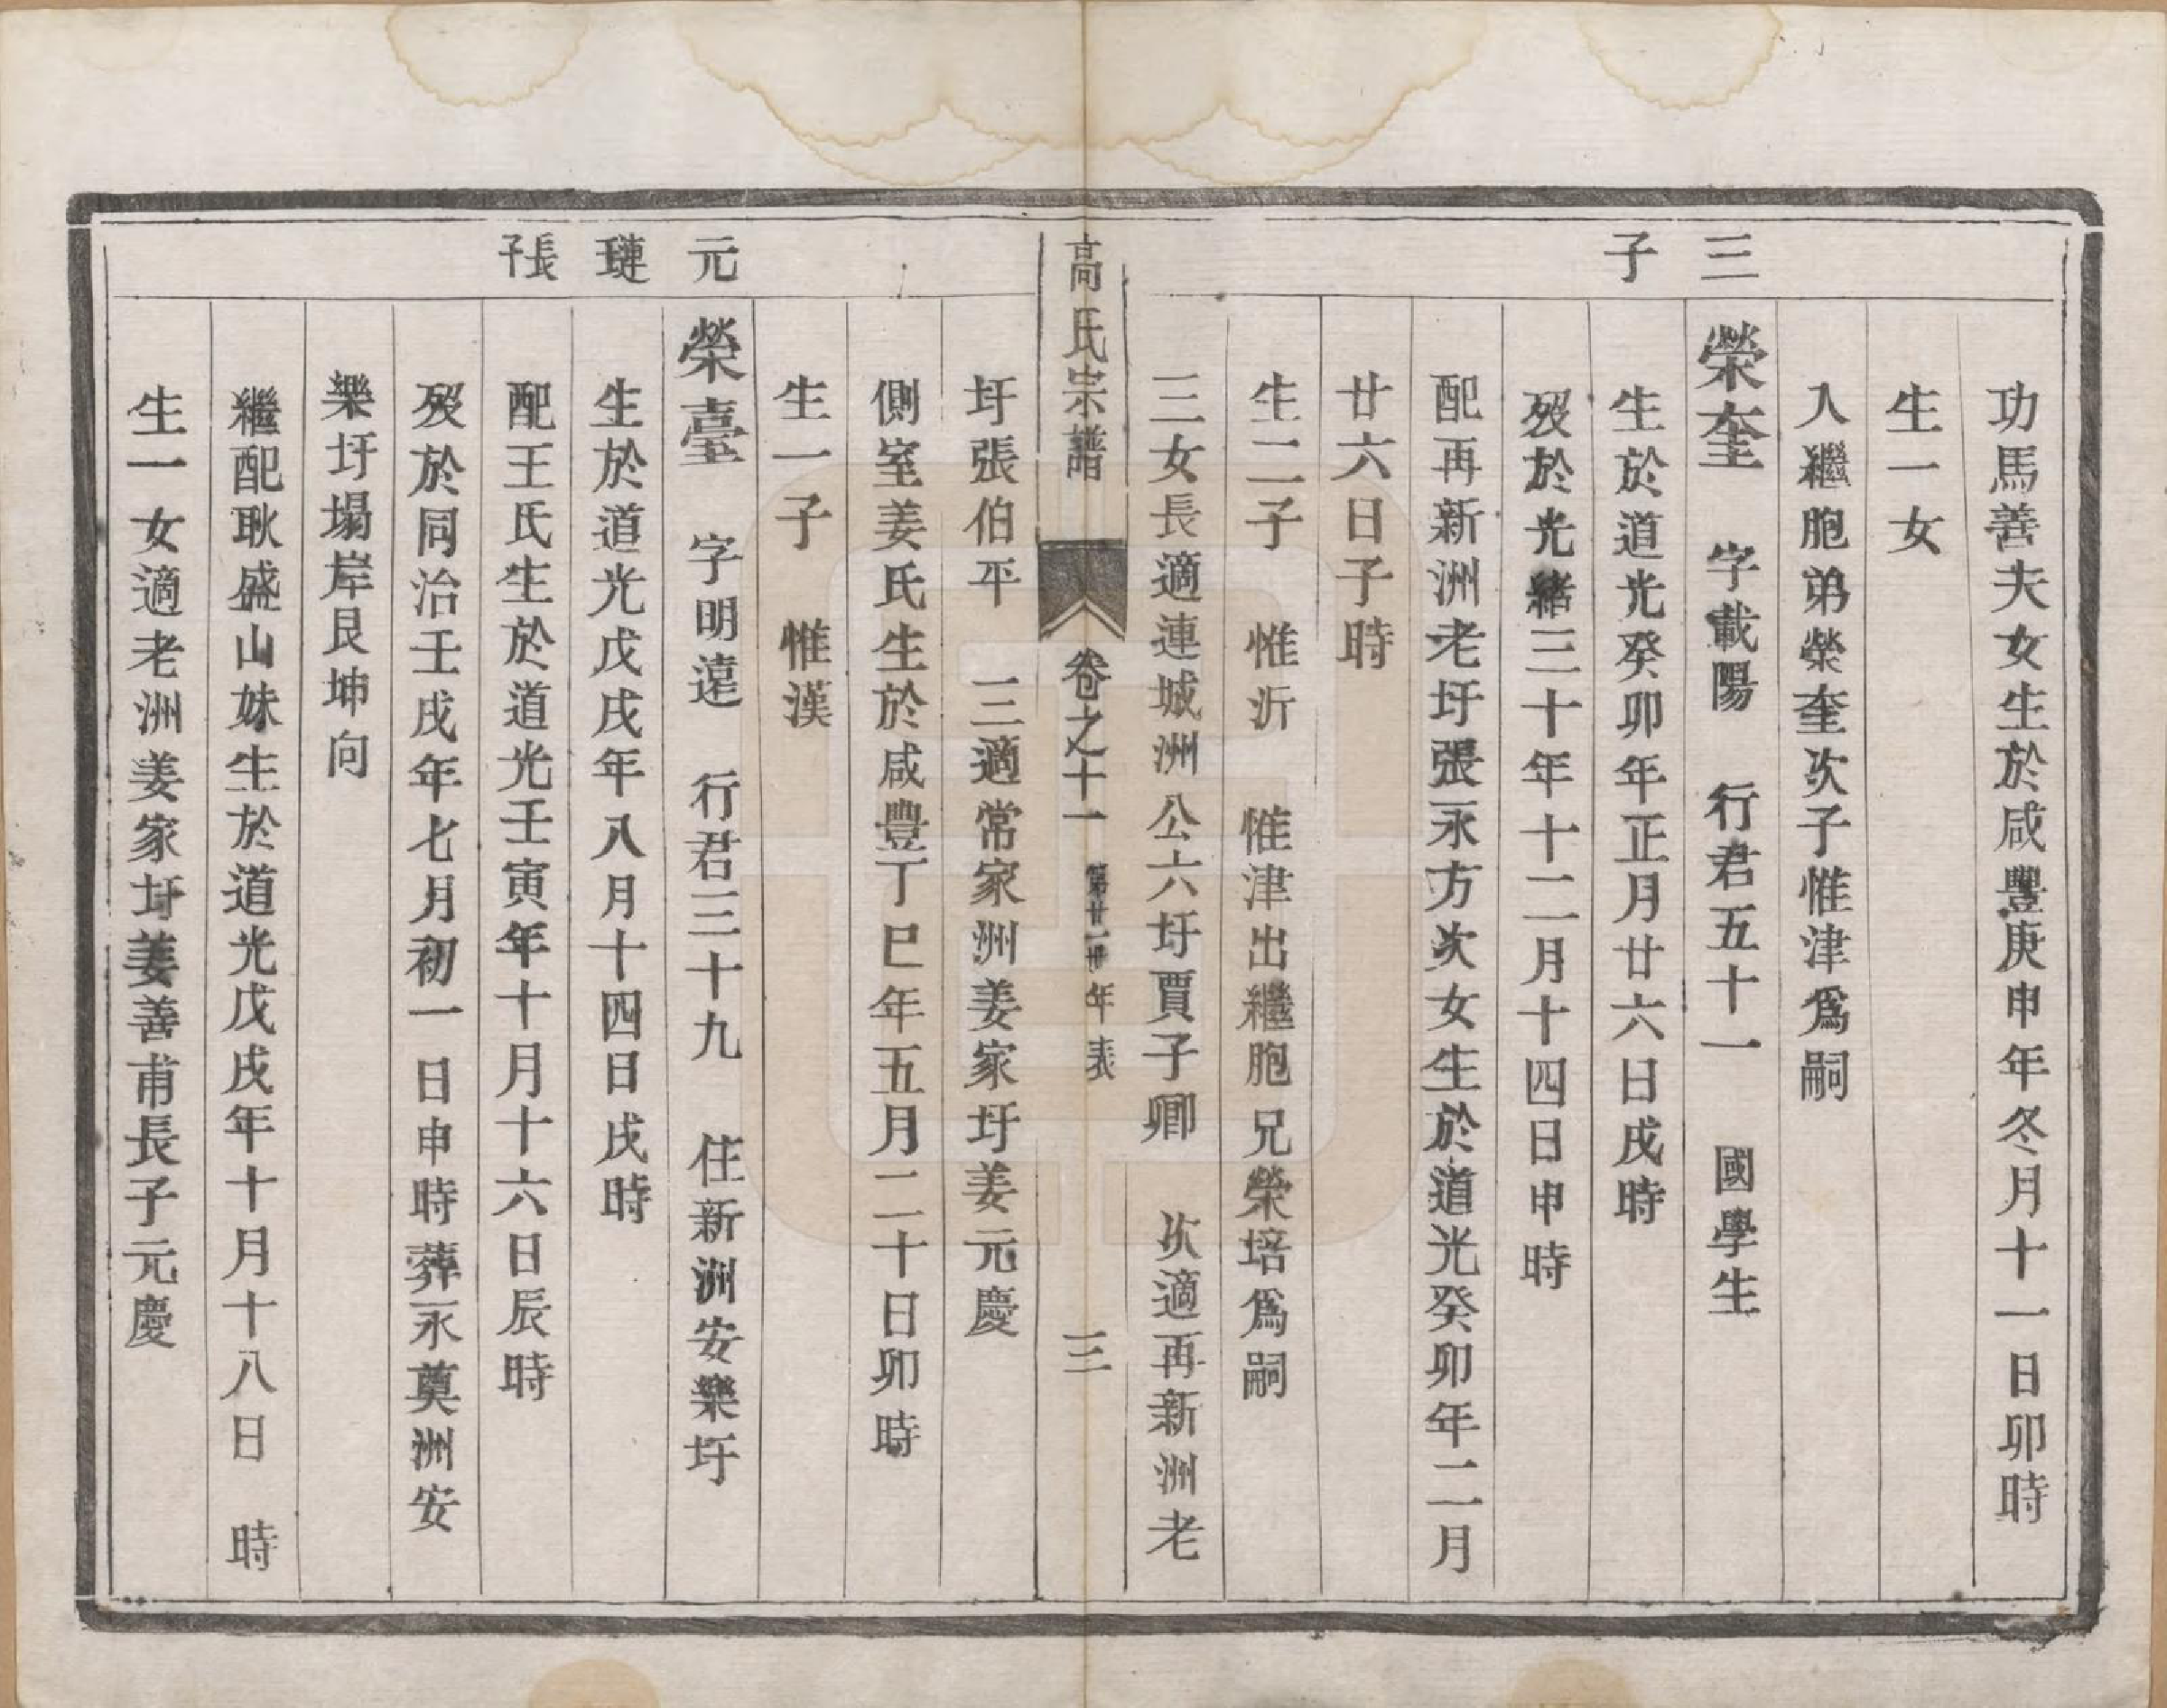 功馬善夫女生於咸豐庚申年冬月十一日卯時
生一女
入繼胞弟榮奎次子惟津爲嗣
三
榮奎　字載陽　行君五十一　國學生
子
生於道光癸卯年正月廿六日戌時
歿於光緒三十年十二月十四日申時
配再新洲老圩張永方次女生於道光癸卯年二月
廿六日子時
生二子　惟沂　惟津出繼胞兄榮培爲嗣
三女長適連城洲公六圩賈子卿　次適再新洲老
高氏宗譜　卷之十一　第廿一世年表　三
圩張伯平　三適常家洲姜家圩姜元慶
側室姜氏生於咸豐丁巳年五月二十日卯時
生一子　惟漢
元
榮臺　字明遠　行君三十九　住新洲安樂圩
璉
生於道光戊戌年八月十四日戌時
長子
配王氏生於道光壬寅年十月十六日辰時
歿於同治壬戌年七月初一日申時葬永奠洲安
樂圩塌岸艮坤向
繼配耿盛山妹生於道光戊戌年十月十八日　時
生一女適老洲姜家圩姜善甫長子元慶